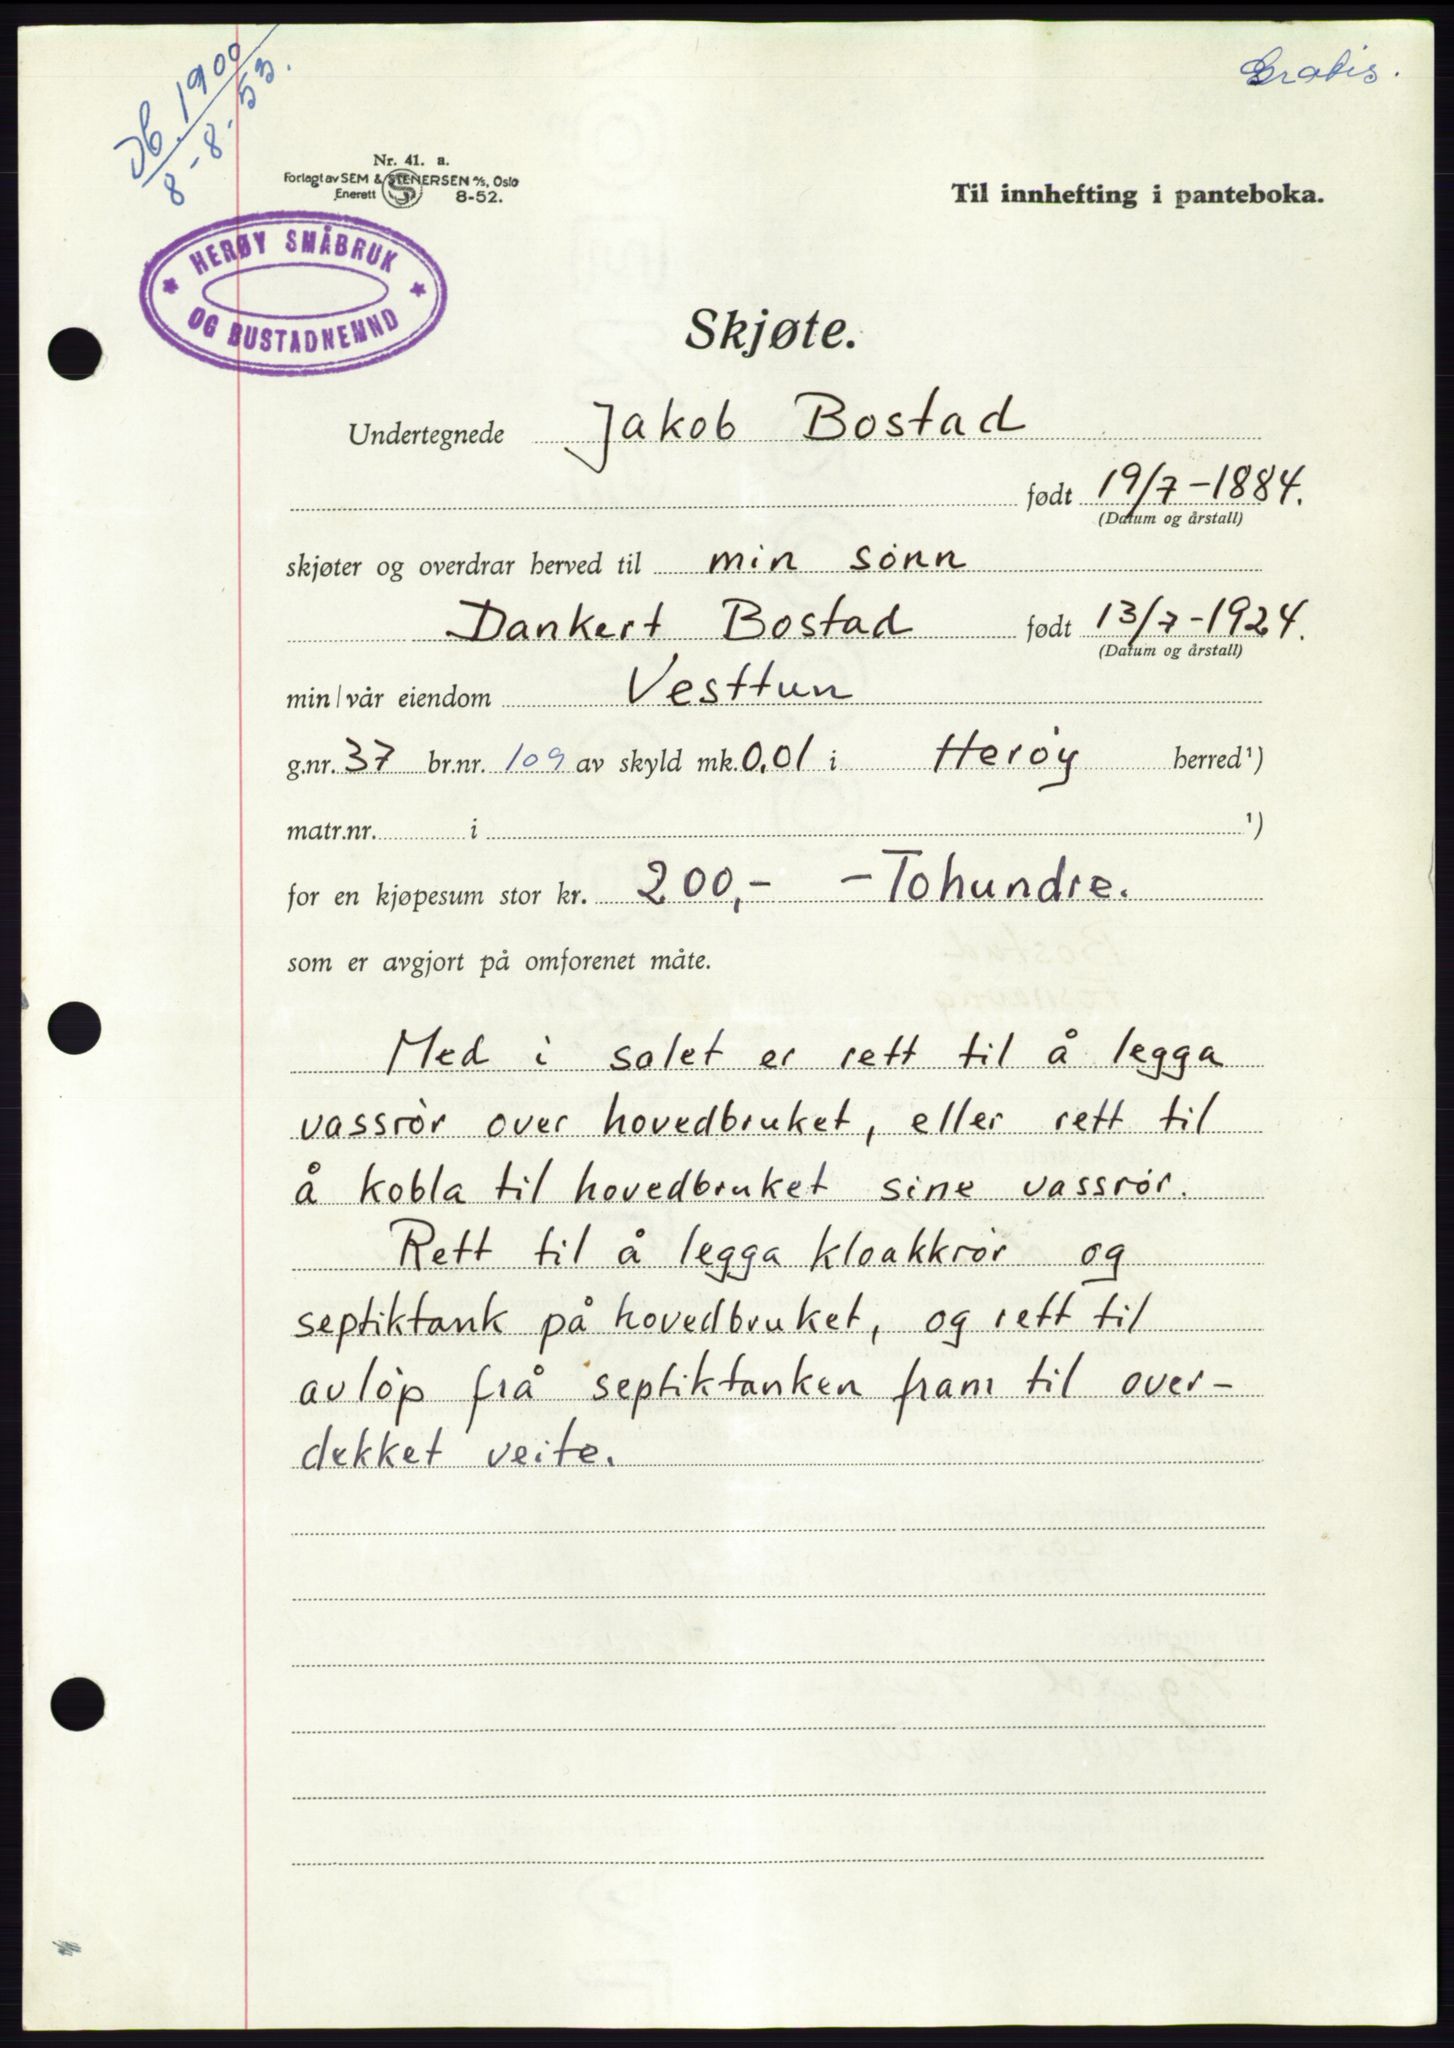 Jb. 1900
8-8-53.
Gratis.
Nr. 41. a.
Forlagt av SEM & STENERSEN A/S, Oslo
Enerett 8-52.
Til innhefting i panteboka.
HERØY SMÅBRUK
OG BUSTADNEMND
Skjøte.
Undertegnede Jakob Bostad
født 19/7-1884.
(Datum og årstall)
skjøter og overdrar herved til min sønn
Dankert Bostad født 13/7-1924.
(Datum og årstall)
min/vår eiendom Vesttun
g.nr. 37 br.nr. 109 av skyld mk. 0,01 i Herøy herred¹)
matr.nr. i ¹)
for en kjøpesum stor kr. 200,- -Tohundre.
som er avgjort på omforenet måte.
Med i salet er rett til å legga
vassrør over hovedbruket, eller rett til
å kobla til hovedbruket sine vassrør.
Rett til å legga kloakkrør og
septiktank på hovedbruket, og rett til
avløp frå septiktanken fram til over-
dekket veite.